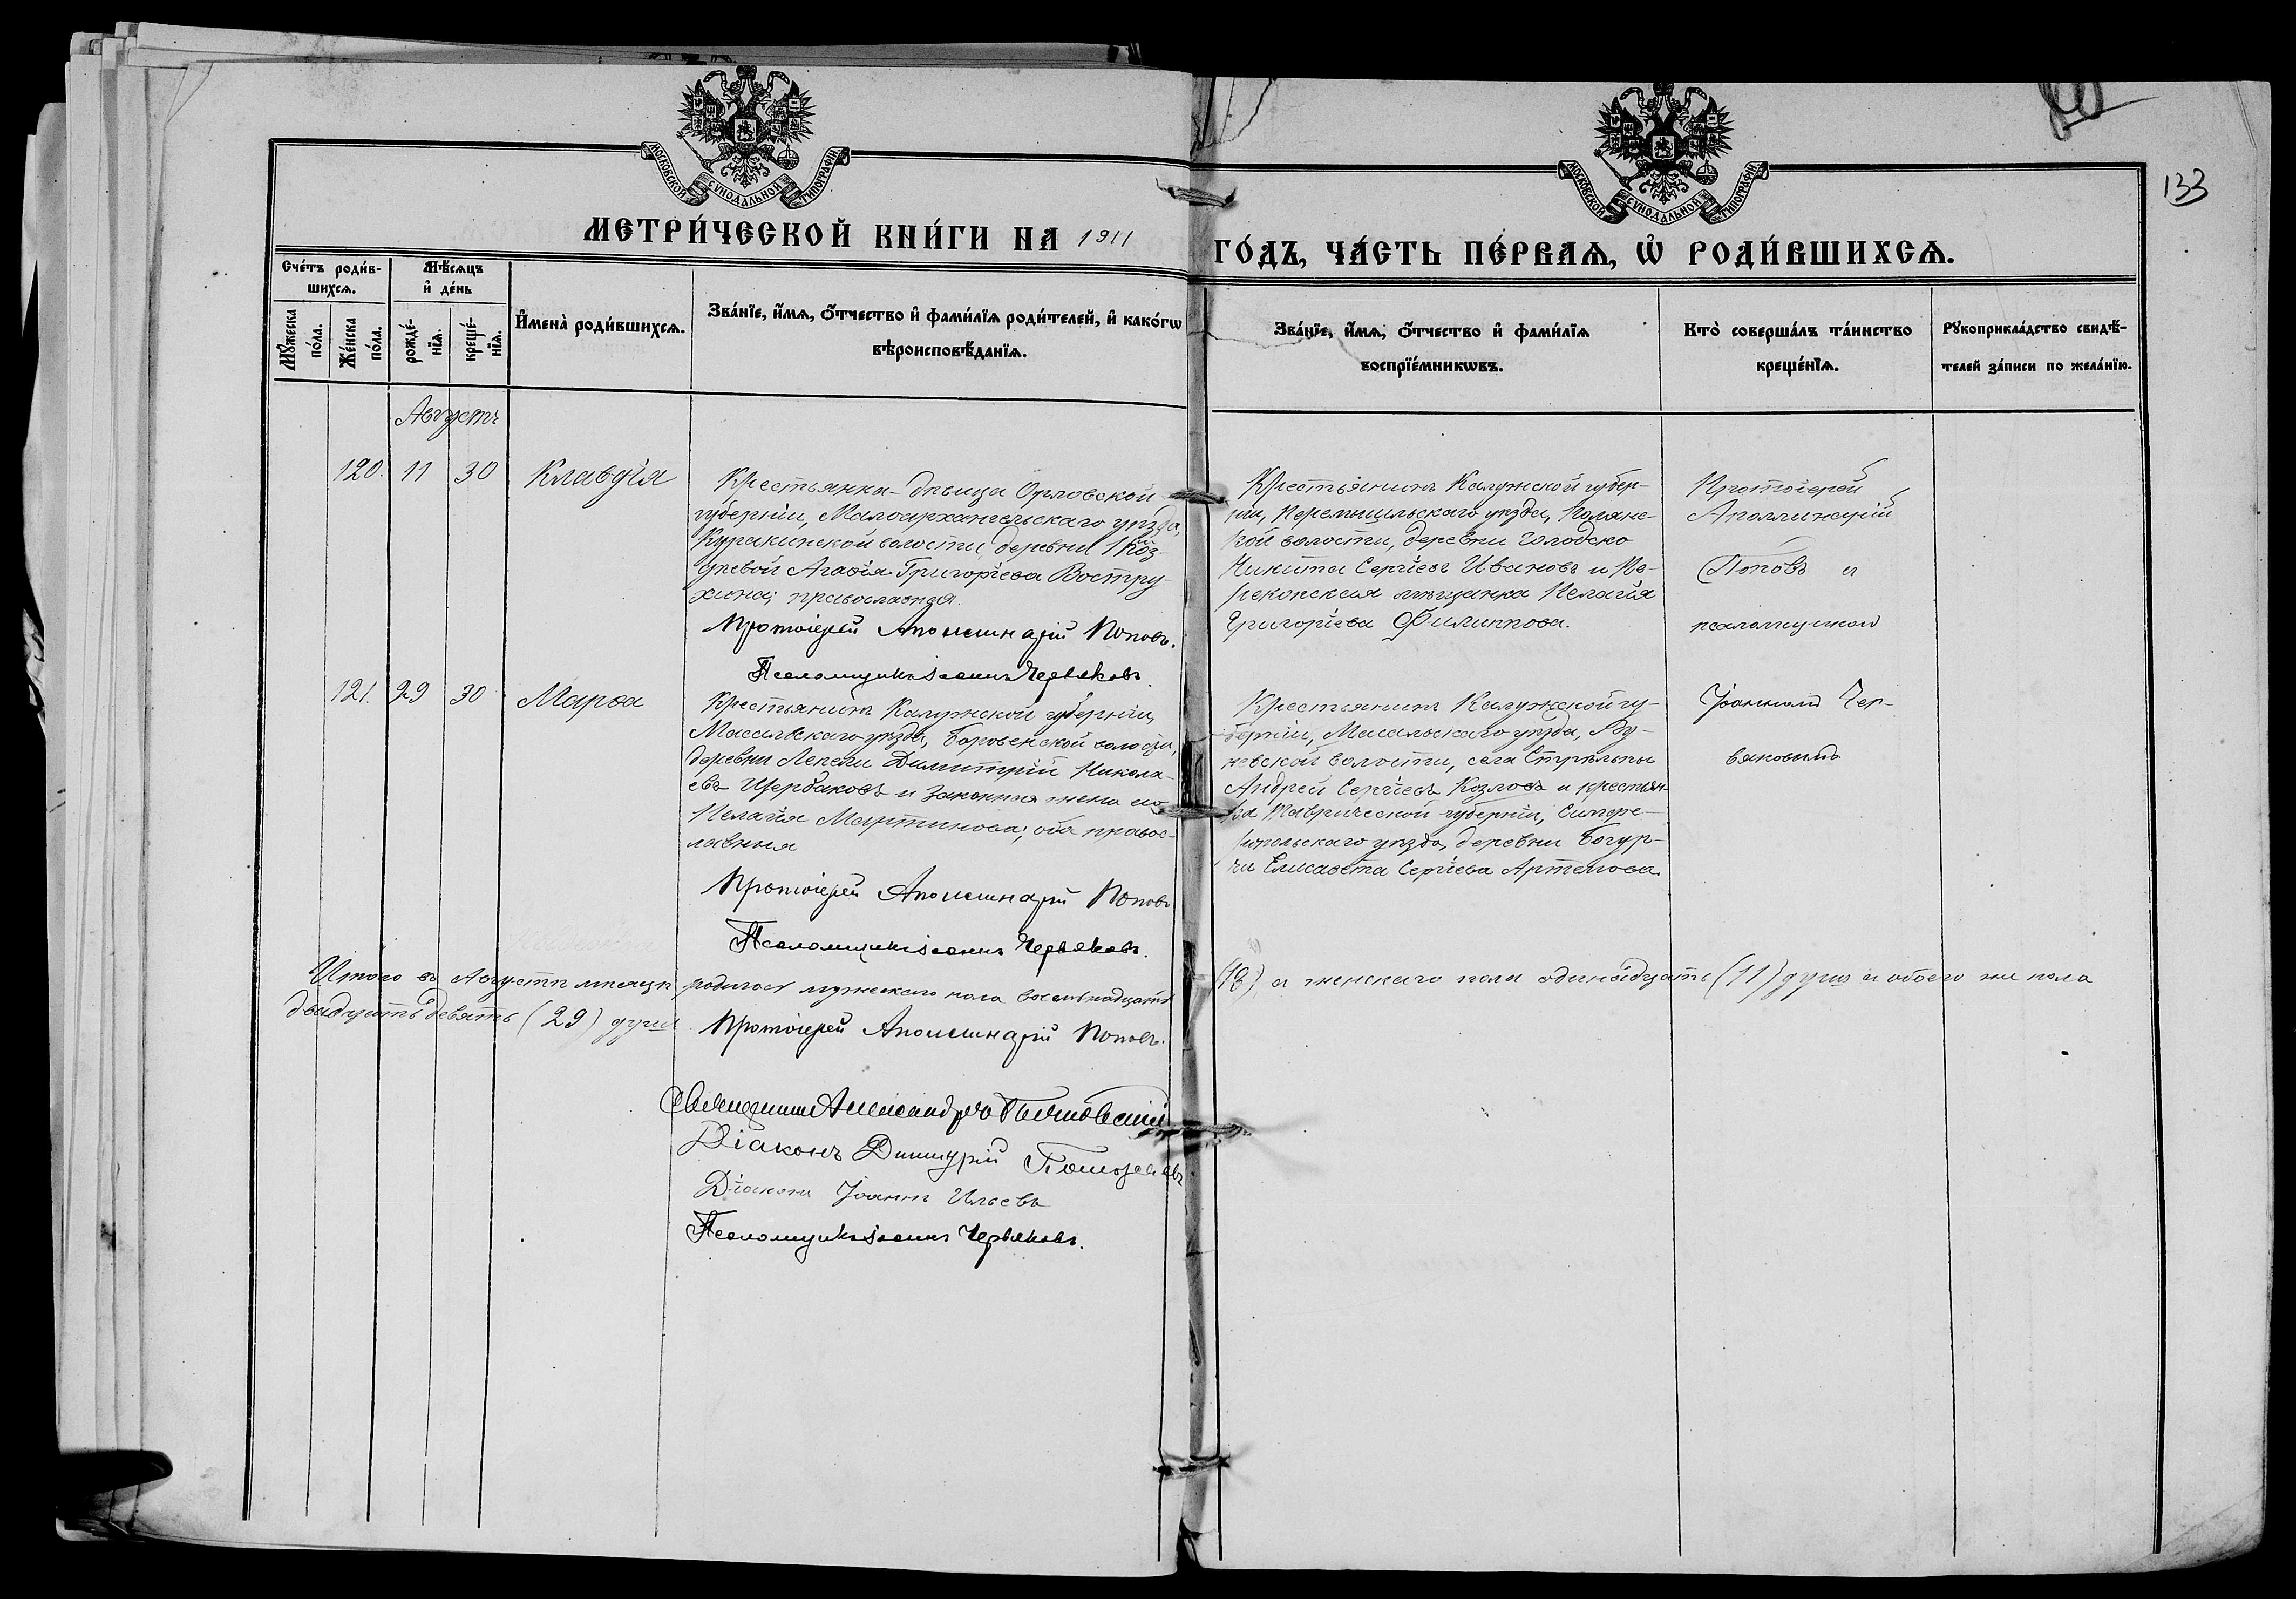 МОСКОВСКОЙ СУНОДАЛЬНОЙ ТИПОГРАФІИ
МОСКОВСКОЙ СУНОДАЛЬНОЙ ТИПОГРАФІИ
133
МЕТРИ́ЧЕСКОЙ КНИ́ГИ НА 1911
ГО́ДЪ, ЧА́СТЬ ПЕ́РВАѦ, Ѡ҆ РОДИ́ВШИХСѦ.
Сче́тъ роди́в-
шихсѧ.
Мꙋ́жеска
по́ла.
Же́нска
по́ла.
Мѣ́сѧцъ
и҆ де́нь
рожде́-
нїѧ.
креще́-
нїѧ.
И҆мена̀ роди́вшихсѧ.
Зва́нїе, и҆́мѧ, ѻ҆́тчество и҆ фами́лїѧ роди́телей, и҆ како́гѡ
вѣроисповѣ́данїѧ.
Зва́нїе, и҆́мѧ, ѻ҆́тчество и҆ фами́лїѧ
воспрїе́мникѡвъ.
Кто̀ соверша́лъ та́инство
креще́нїѧ.
Рꙋкоприкла́дство свидѣ́-
телей за́писи по жела́нїю.
Августъ
120. 11 30 Клавдія
Крестьянка-дѣвица Орловской
губерніи, Малоархангельскаго уѣзда,
Куракинской волости, деревни
Агаѳія Григоріева Востру-
хина; православная.
Протоіерей Аполлинарій Поповъ.
Псаломщикъ Іоаннъ Червяковъ.
Крестьянинъ Калужской губер-
ніи, Перемышльскаго уѣзда, Полянс-
кой волости, деревни Голодско
Никита Сергіевъ Ивановъ и Пе-
рекопская мѣщанка Пелагія
Григоріева Филиппова.
Протоіерей
Аполлинарій
Поповъ и
псаломщикъ
Іоанномъ Чер-
вяковымъ
121. 29 30 Марѳа
Крестьянинъ Калужской губерніи,
Масальскаго уѣзда, Боровенской волости,
деревни Лепехи Димитрій Никола-
евъ Щербаковъ и законная жена его
Пелагія Мартинова; оба правос-
лавныя
Протоіерей Аполлинарій Поповъ
Псаломщикъ Іоаннъ Червяковъ.
Крестьянинъ Калужской гу-
берніи, Масальскаго уѣзда,
невской волости, села Стрѣльны
Андрей Сергіевъ Козловъ и крестьян-
ка Таврической губерніи, Симфе-
ропольскаго уѣзда, деревни Богур-
чи Елисавета Сергіева Артемова.
Итого въ Августѣ мѣсяцѣ родилось мужескаго пола восемнадцать (18), а женскаго пола одинадцать (11) душъ и обоего же пола
двадцать девять (29) душъ.
Протоіерей Аполлинарій Поповъ.
Священникъ Александръ
Діаконъ Димитрій
Діаконъ Іоаннъ Ильевъ
Псаломщикъ Іоаннъ Червяковъ.